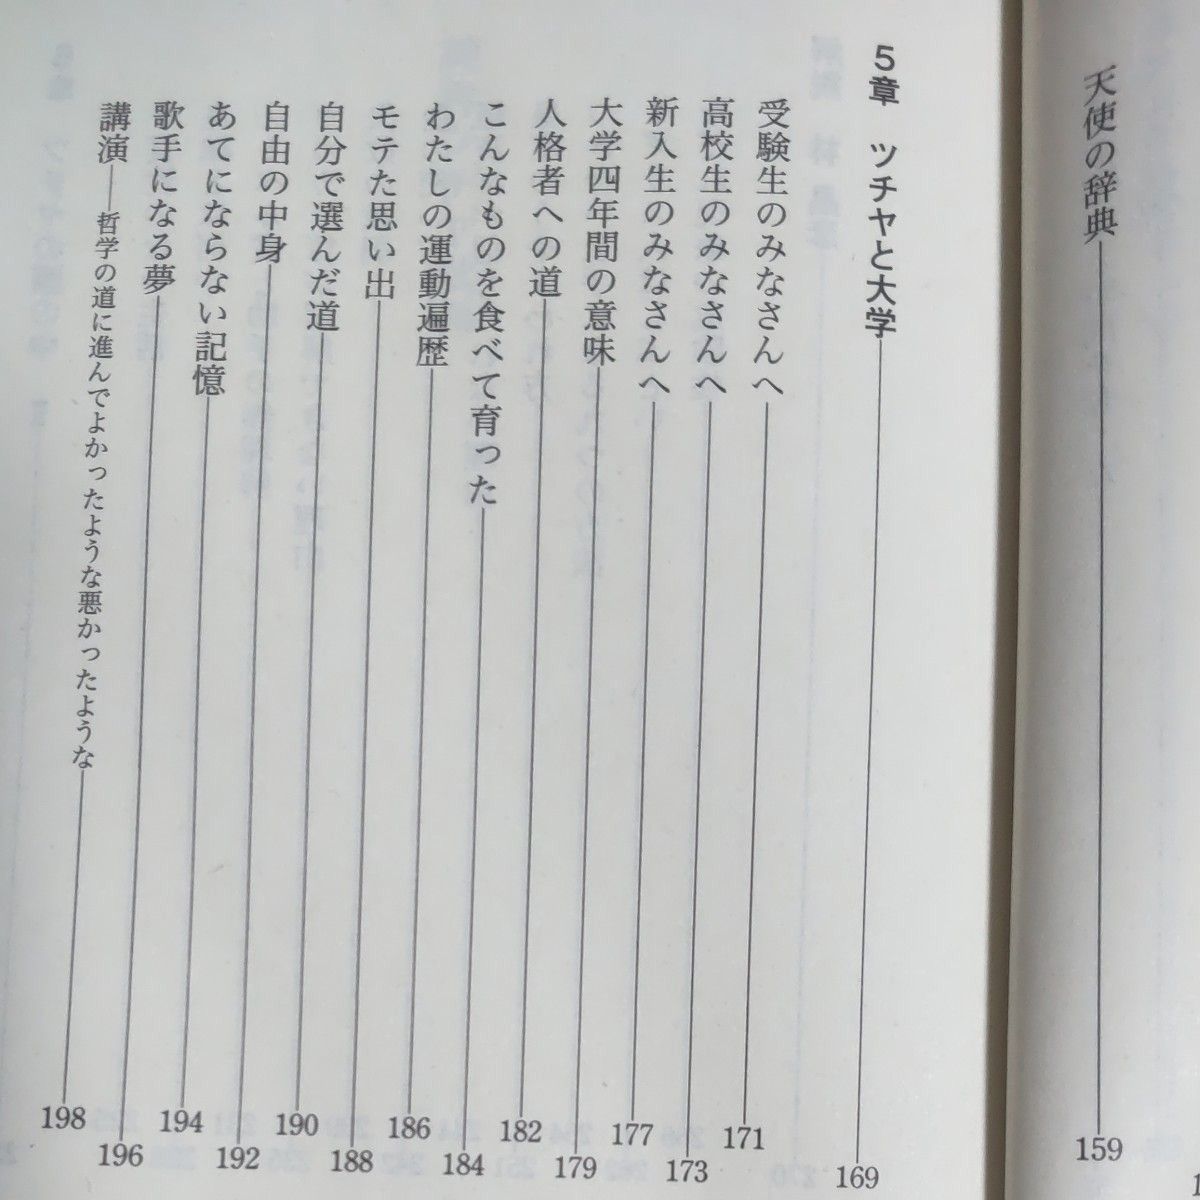 天使の辞典 159
5章 ツチヤと大学 169
受験生のみなさんへ 171
高校生のみなさんへ 173
新入生のみなさんへ 177
大学四年間の意味 179
人格者への道 182
こんなものを食べて育った 184
わたしの運動遍歴 186
モテた思い出 188
自分で選んだ道 190
自由の中身 192
あてにならない記憶 194
歌手になる夢 196
講演——哲学の道に進んでよかったような悪かったような 198